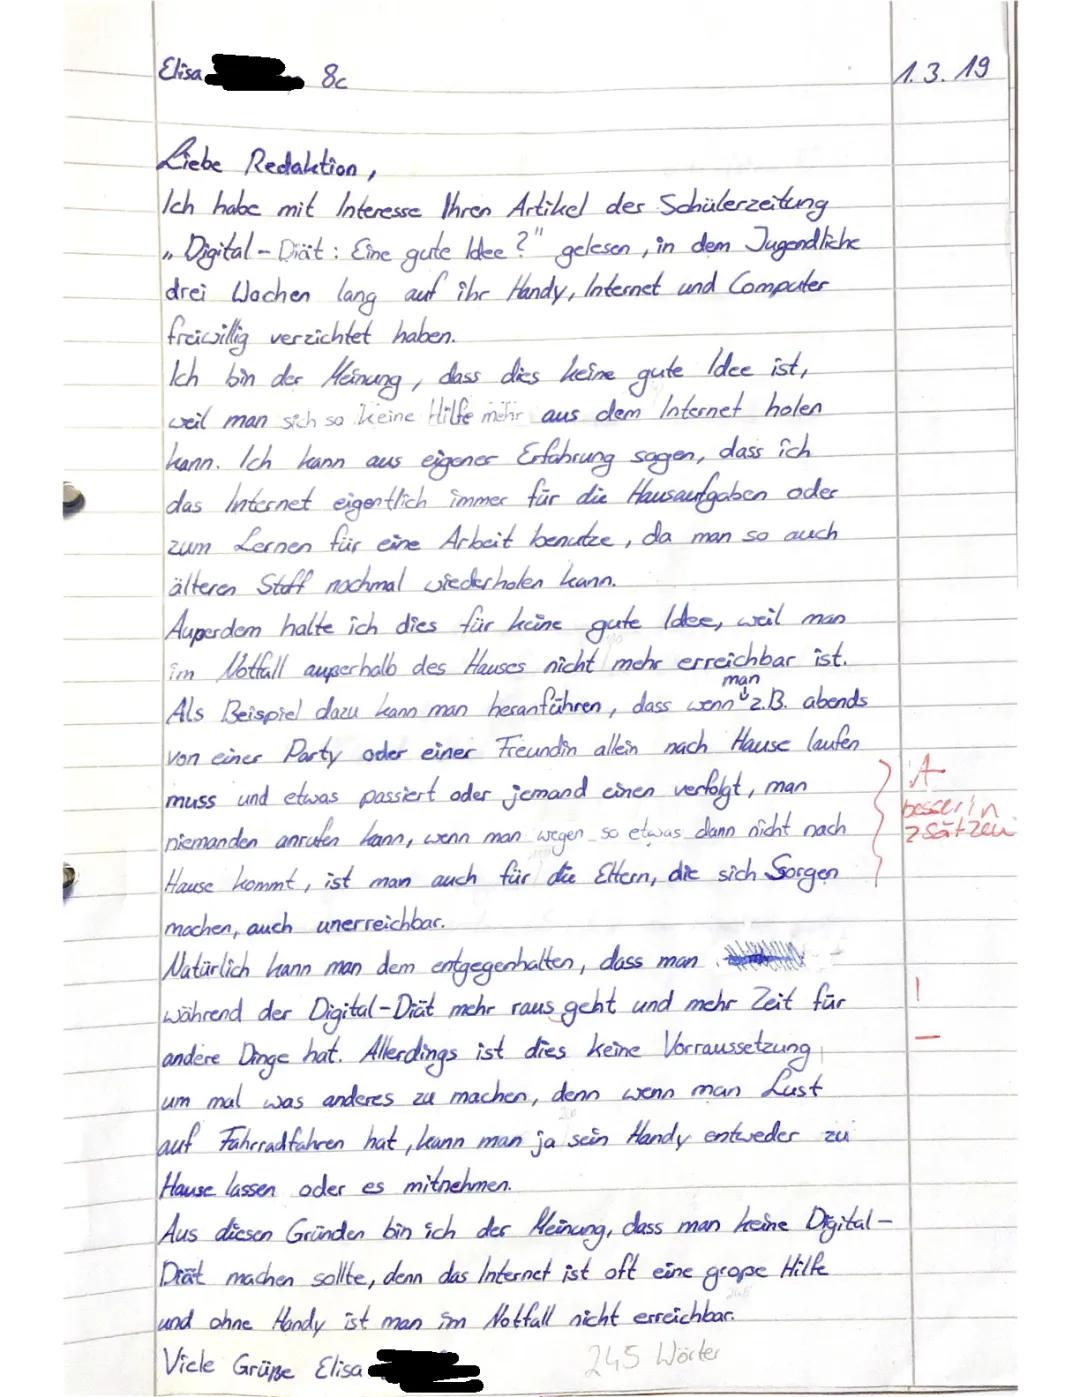 Elisa 8c 1.3.19
Liebe Redaktion,
Ich habe mit Interesse Ihren Artikel der Schülerzeitung
„Digital-Diät: Eine gute Idee?" gelesen, in dem Jugendliche
drei Wochen lang auf ihr Handy, Internet und Computer
freiwillig verzichtet haben.
Ich bin der Meinung, dass dies keine gute Idee ist,
weil man sich so keine Hilfe mehr aus dem Internet holen
kann. Ich kann aus eigener Erfahrung sagen, dass ich
das Internet eigentlich immer für die Hausaufgaben oder
zum Lernen für eine Arbeit benutze, da man so auch
älteren Stoff nochmal wiederholen kann.
Außerdem halte ich dies für keine gute Idee, weil man
im Notfall außerhalb des Hauses nicht mehr erreichbar ist.
man
Als Beispiel dazu kann man heranführen, dass wenn z.B. abends
von einer Party oder einer Freundin allein nach Hause laufen
muss und etwas passiert oder jemand einen verfolgt, man
A
besser in
2 Sätzen
niemanden anrufen kann, wenn man wegen so etwas dann nicht nach
Hause kommt, ist man auch für die Eltern, die sich Sorgen
machen, auch unerreichbar.
Natürlich kann man dem entgegenhalten, dass man
während der Digital-Diät mehr raus geht und mehr Zeit für !
andere Dinge hat. Allerdings ist dies keine Vorraussetzung –
um mal was anderes zu machen, denn wenn man Lust
auf Fahrradfahren hat, kann man ja sein Handy entweder zu
Hause lassen oder es mitnehmen.
Aus diesen Gründen bin ich der Meinung, dass man keine Digital-
Diät machen sollte, denn das Internet ist oft eine große Hilfe
und ohne Handy ist man im Notfall nicht erreichbar.
Viele Grüße Elisa
245 Wörter